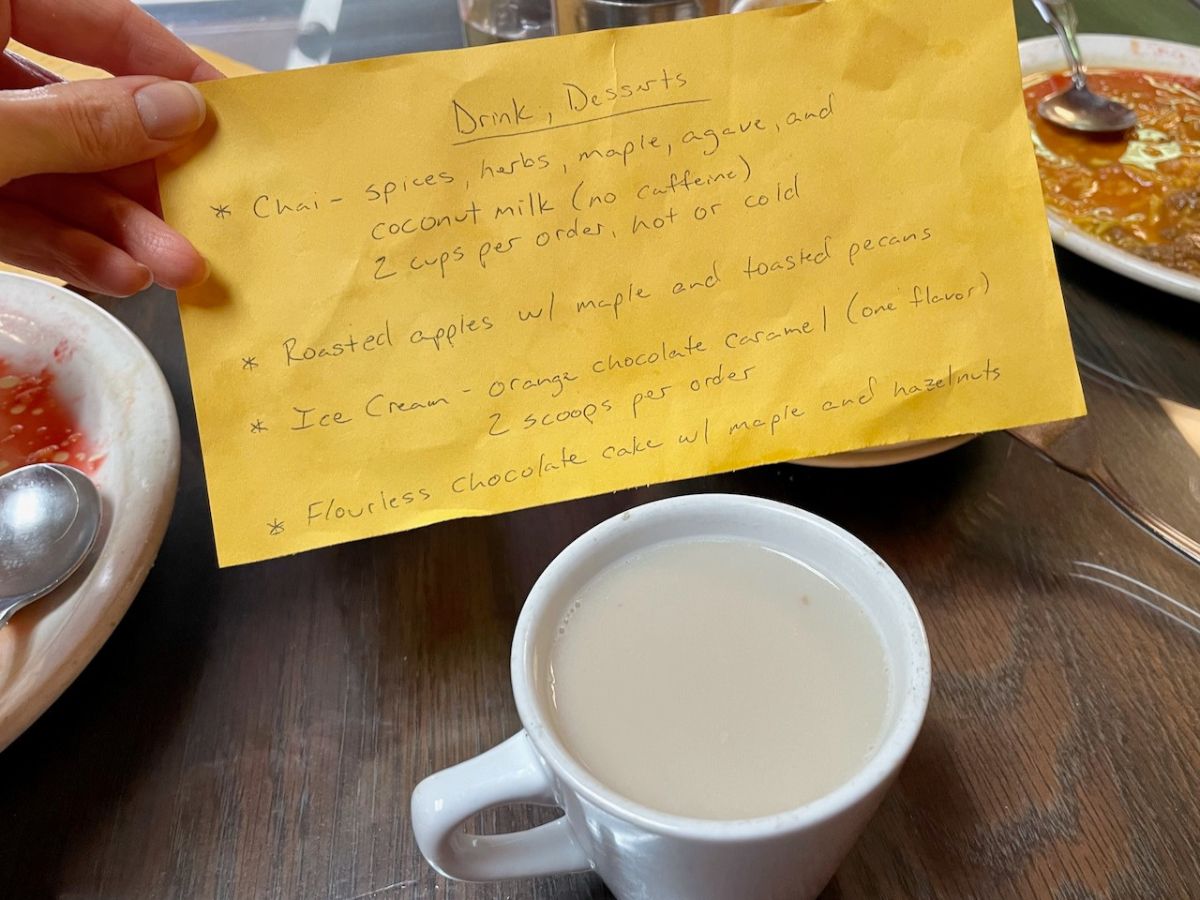 Drink, Desserts
* Chai - spices, herbs, maple, agave, and
coconut milk (no caffeine)
2 cups per order, hot or cold
* Roasted apples w/ maple and toasted pecans
* Ice Cream - orange chocolate caramel (one flavor)
2 scoops per order
* Flourless chocolate cake w/ maple and hazelnuts